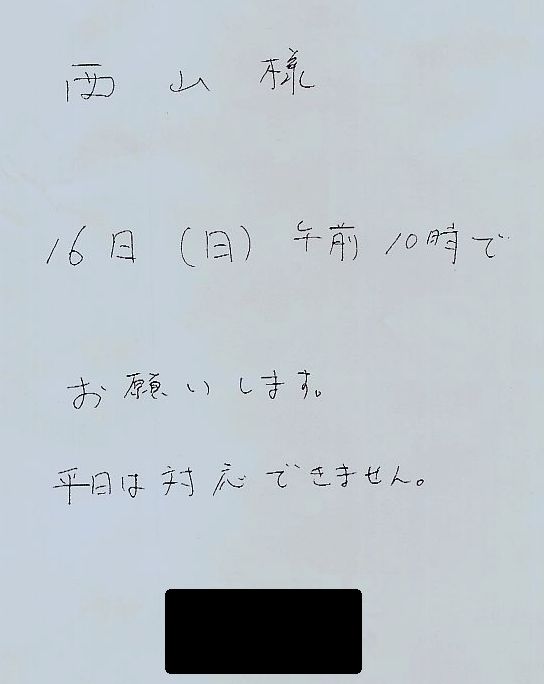 西山様
16日(日)午前10時で
お願いします。
平日は対応できません。